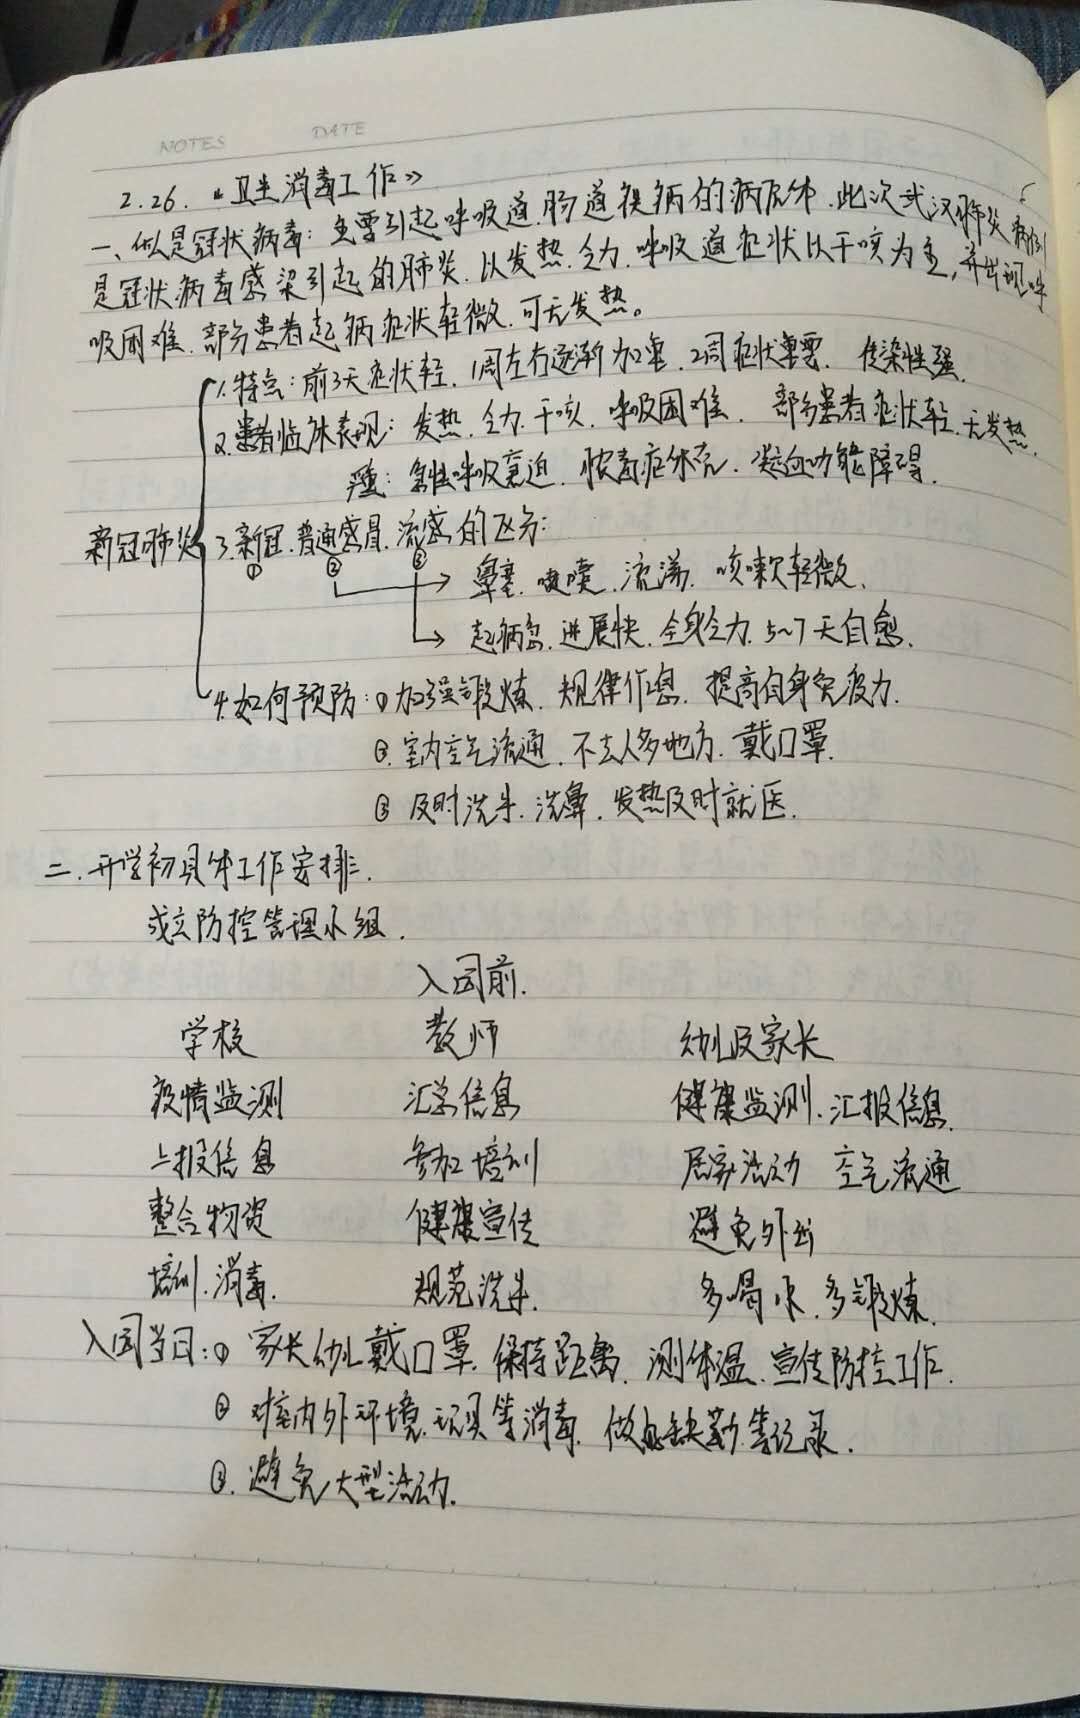 NOTES DATE
2.26. 《卫生消毒工作》
一、什么是冠状病毒：主要引起呼吸道.肠道疾病的病原体.此次武汉肺炎病例
是冠状病毒感染引起的肺炎.以发热.乏力.呼吸道症状以干咳为主,并出现呼
吸困难.部分患者起病症状轻微.可无发热。
1.特点：前3天症状轻.1周左右逐渐加重.2周症状重要. 传染性强.
2.患者临床表现：发热.乏力.干咳.呼吸困难. 部分患者症状轻.无发热.
严重：急性呼吸衰迫.脓毒症休克.凝血功能障碍.
新冠肺炎 3.新冠.普通感冒.流感的区分：
① ② ③
鼻塞.喷嚏.流涕.咳嗽轻微.
起病急.进展快.全身乏力.5~7天自愈.
4.如何预防：①加强锻炼.规律作息.提高自身免疫力.
②.室内空气流通.不去人多地方.戴口罩.
③ 及时洗手.洗鼻.发热及时就医.
二.开学初具体工作安排.
成立防控管理小组.
入园前.
学校 教师 幼儿及家长
疫情监测 汇总信息 健康监测.汇报信息.
上报信息 参加培训 居家活动 空气流通
整合物资 健康宣传 避免外出
培训.消毒. 规范洗手. 多喝水.多锻炼.
入园当日：① 家长幼儿戴口罩.保持距离.测体温.宣传防控工作.
② 对室内外环境.玩具等消毒.做缺勤等记录.
③.避免大型活动.